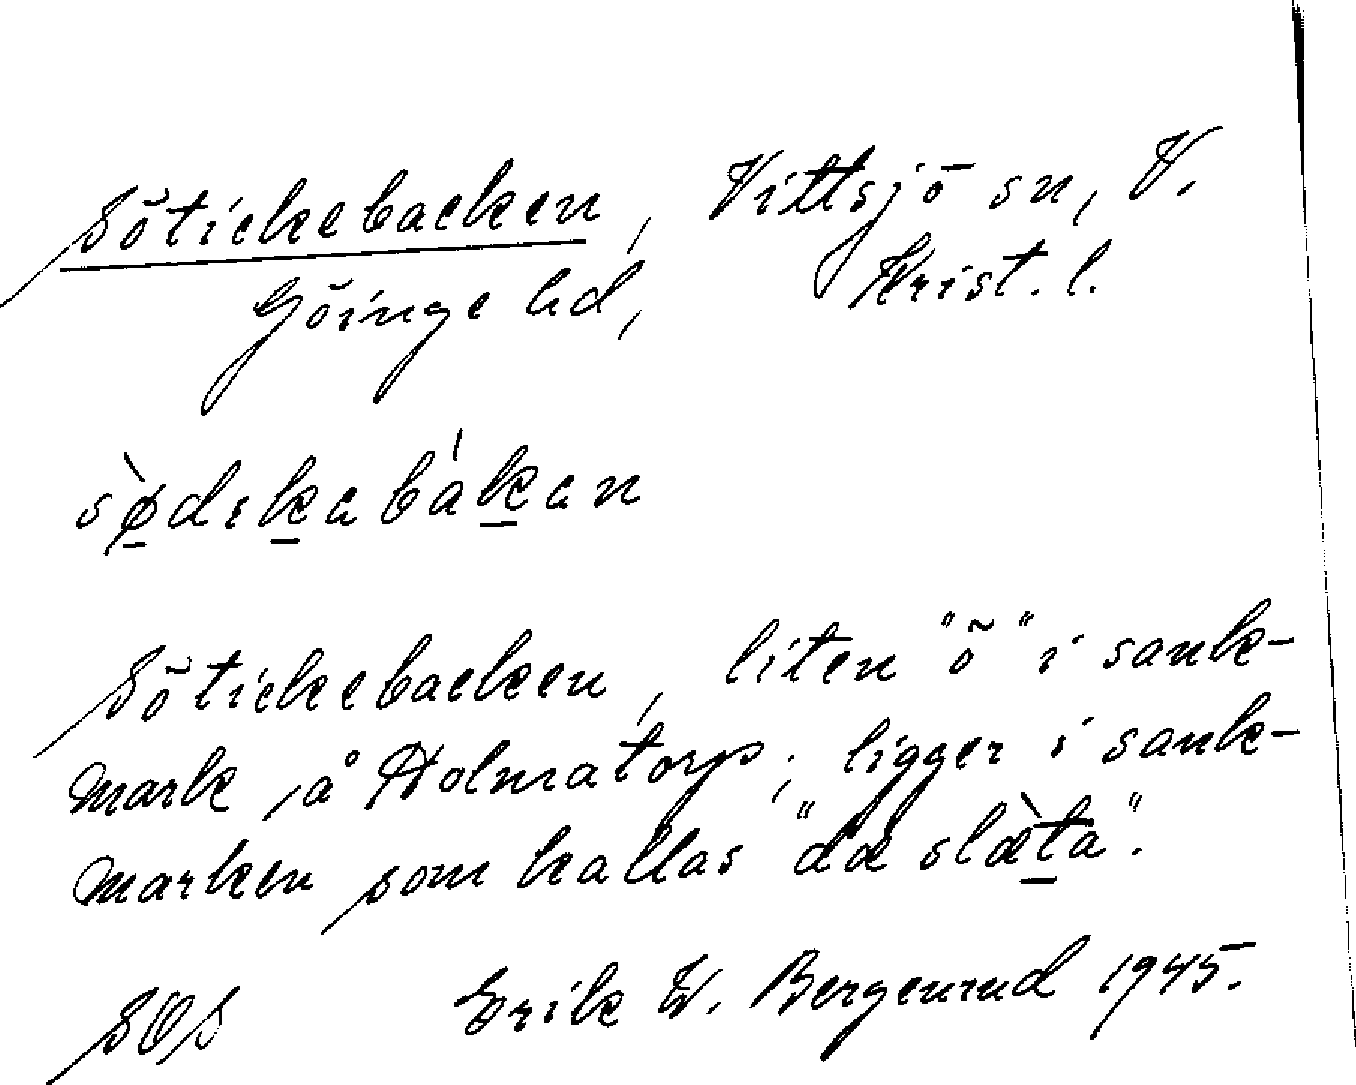 Sötickebacken, Vittsjö sn, V.
Göinge hd, Krist. l.
sø̱̀dika̱báḵan
Sötickebacken, liten "ö" i sank-
mark, å Holmatorp; ligger i sank-
marken som kallas "dæ slæ̀ṯa".
SOS Erik W. Bergenrud 1945.